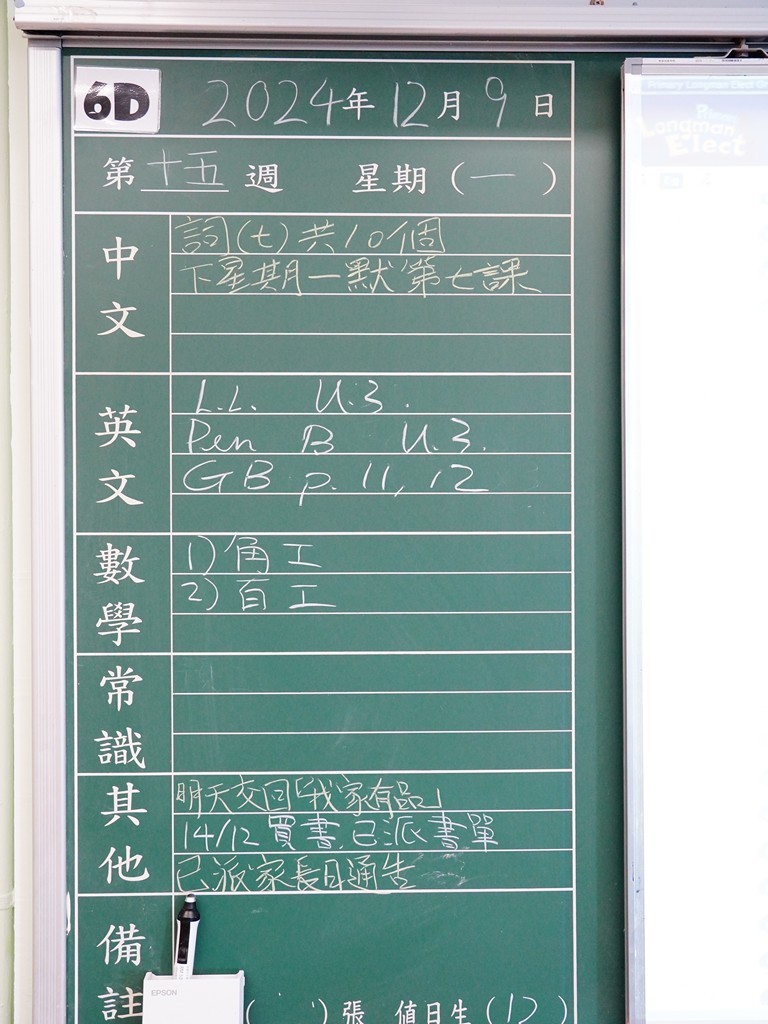 6D 2024年12月9日
第十五週 星期(一)
中文
詞(七)共10個
下星期一默第七課
英文
L.L. U.3.
Pen B U.3.
GB p. 11, 12
數學
1) 角工
2) 百工
常識
其他
明天交回「我家有品」
14/12 買書,已派書單
已派家長日通告
備註
EPSON
( )張 值日生(12)
Primary Longman Elect
Longman
Elect